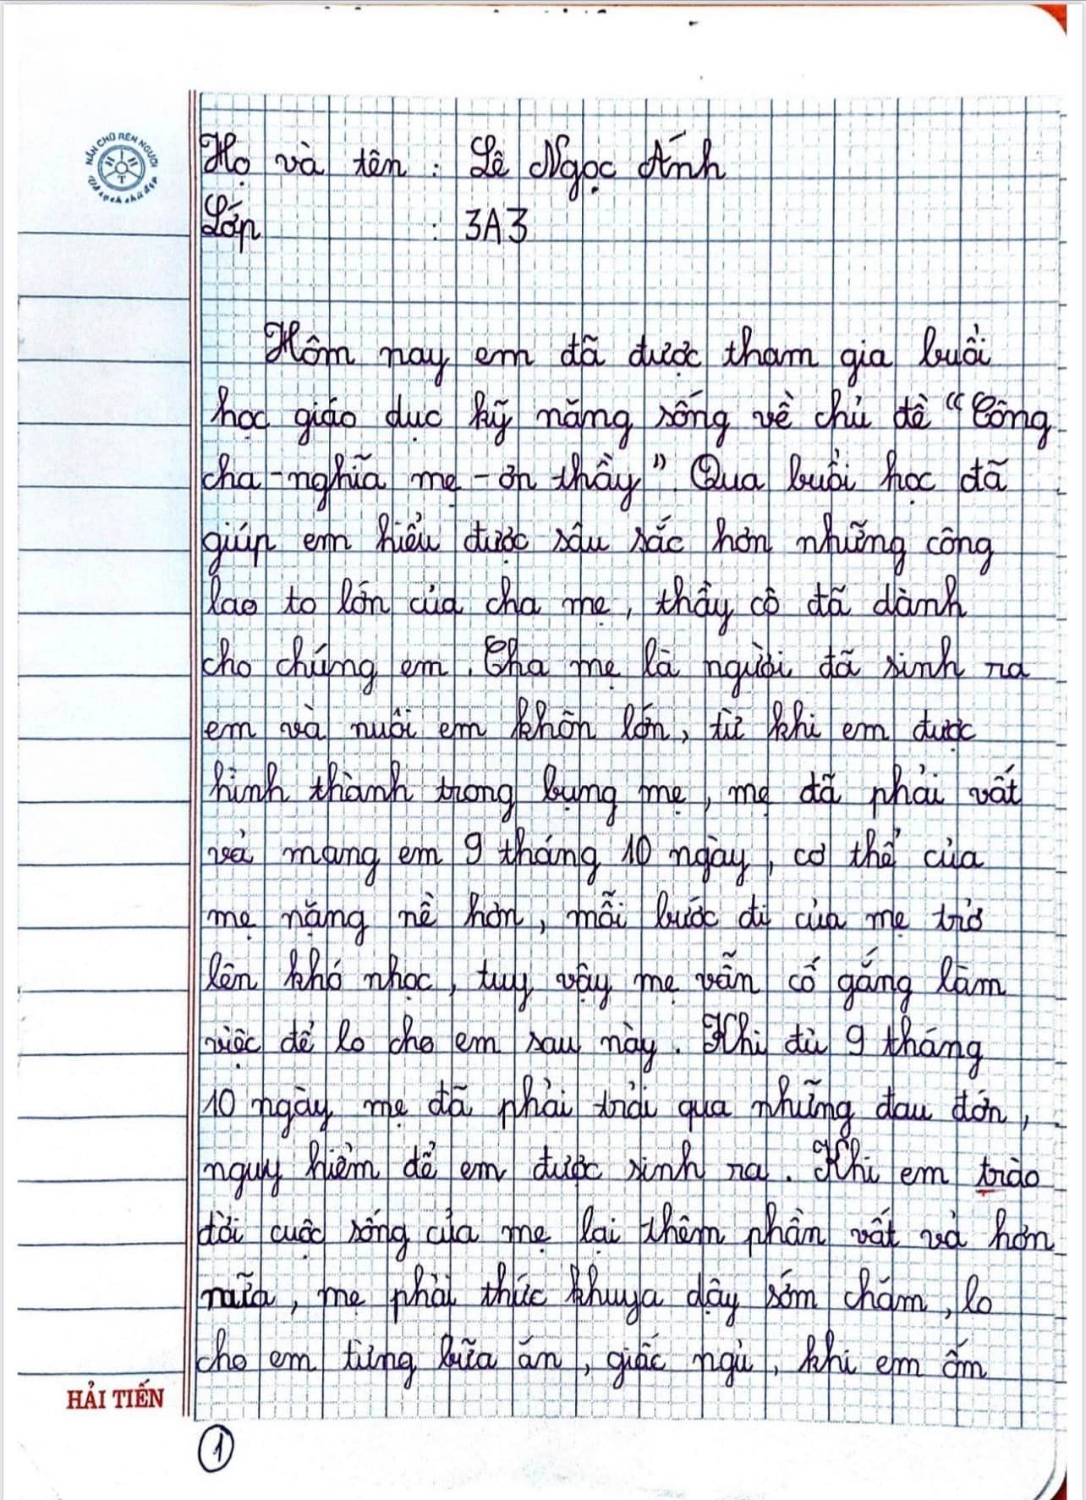 NẮN CHỮ RÈN NGƯỜI
Vở sạch chữ đẹp
Họ và tên : Lê Ngọc Ánh
Lớp : 3A3
Hôm nay em đã được tham gia buổi
học giáo dục kỹ năng sống về chủ đề “Công
cha - nghĩa mẹ - ơn thầy”. Qua buổi học đã
giúp em hiểu được sâu sắc hơn những công
lao to lớn của cha mẹ, thầy cô đã dành
cho chúng em. Cha mẹ là người đã sinh ra
em và nuôi em khôn lớn, từ khi em được
hình thành trong bụng mẹ, mẹ đã phải vất
vả mang em 9 tháng 10 ngày, cơ thể của
mẹ nặng nề hơn, mỗi bước đi của mẹ trở
lên khó nhọc, tuy vậy mẹ vẫn cố gắng làm
việc để lo cho em sau này. Khi đủ 9 tháng
10 ngày mẹ đã phải trải qua những đau đớn,
nguy hiểm để em được sinh ra. Khi em trào
đời cuộc sống của mẹ lại thêm phần vất vả hơn
nữa, mẹ phải thức khuya dậy sớm chăm, lo
cho em từng bữa ăn, giấc ngủ, khi em ốm
HẢI TIẾN
1